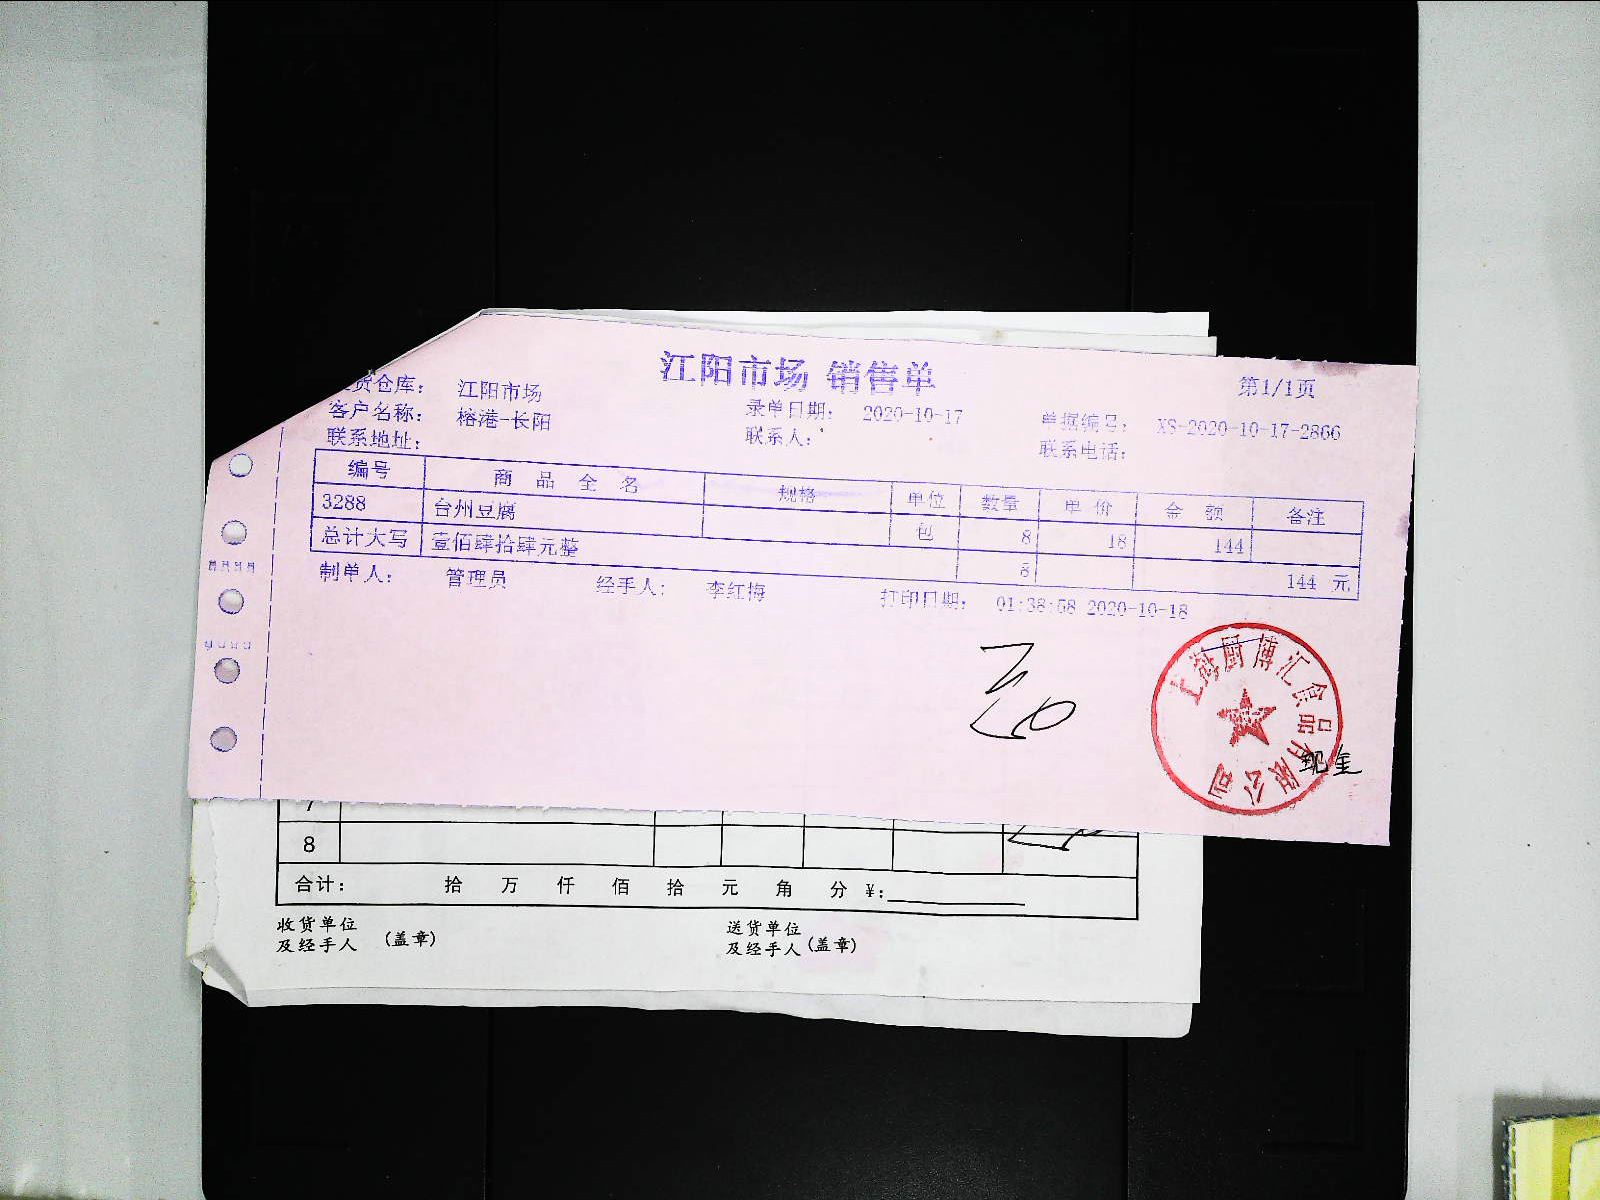 江阳市场 销售单
第1/1页
货仓库： 江阳市场
客户名称： 榕港-长阳 录单日期： 2020-10-17 单据编号： XS-2020-10-17-2866
联系地址： 联系人： 联系电话：
编号 商品全名 规格 单位 数量 单价 金额 备注
3288 台州豆腐 包 8 18 144
总计大写 壹佰肆拾肆元整 8 144 元
制单人： 管理员 经手人： 李红梅 打印日期： 01:38:58 2020-10-18
上海厨博汇食品有限公司
现金
7
8
合计： 拾 万 仟 佰 拾 元 角 分 ¥:
收货单位 送货单位
及经手人 (盖章) 及经手人 (盖章)